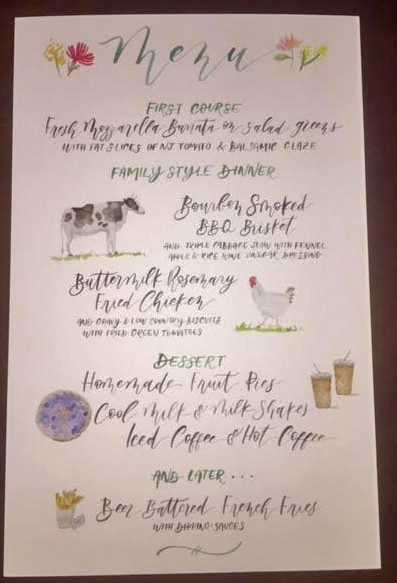 Menu
FIRST COURSE
Fresh Mozzarella Burrata on salad greens
WITH FAT SLICES OF NJ TOMATO & BALSAMIC GLAZE
FAMILY STYLE DINNER
Bourbon Smoked
BBQ Brisket
AND TRIPLE CABBAGE SLAW WITH FENNEL
APPLE & RICE WINE VINEGAR DRESSING
Buttermilk Rosemary
Fried Chicken
AND GRAVY & LOW COUNTRY BISCUITS
WITH FRIED GREEN TOMATOES
DESSERT
Homemade Fruit Pies
Cool Milk & Milk Shakes
Iced Coffee & Hot Coffee
AND LATER...
Beer Battered French Fries
WITH DIPPING SAUCES